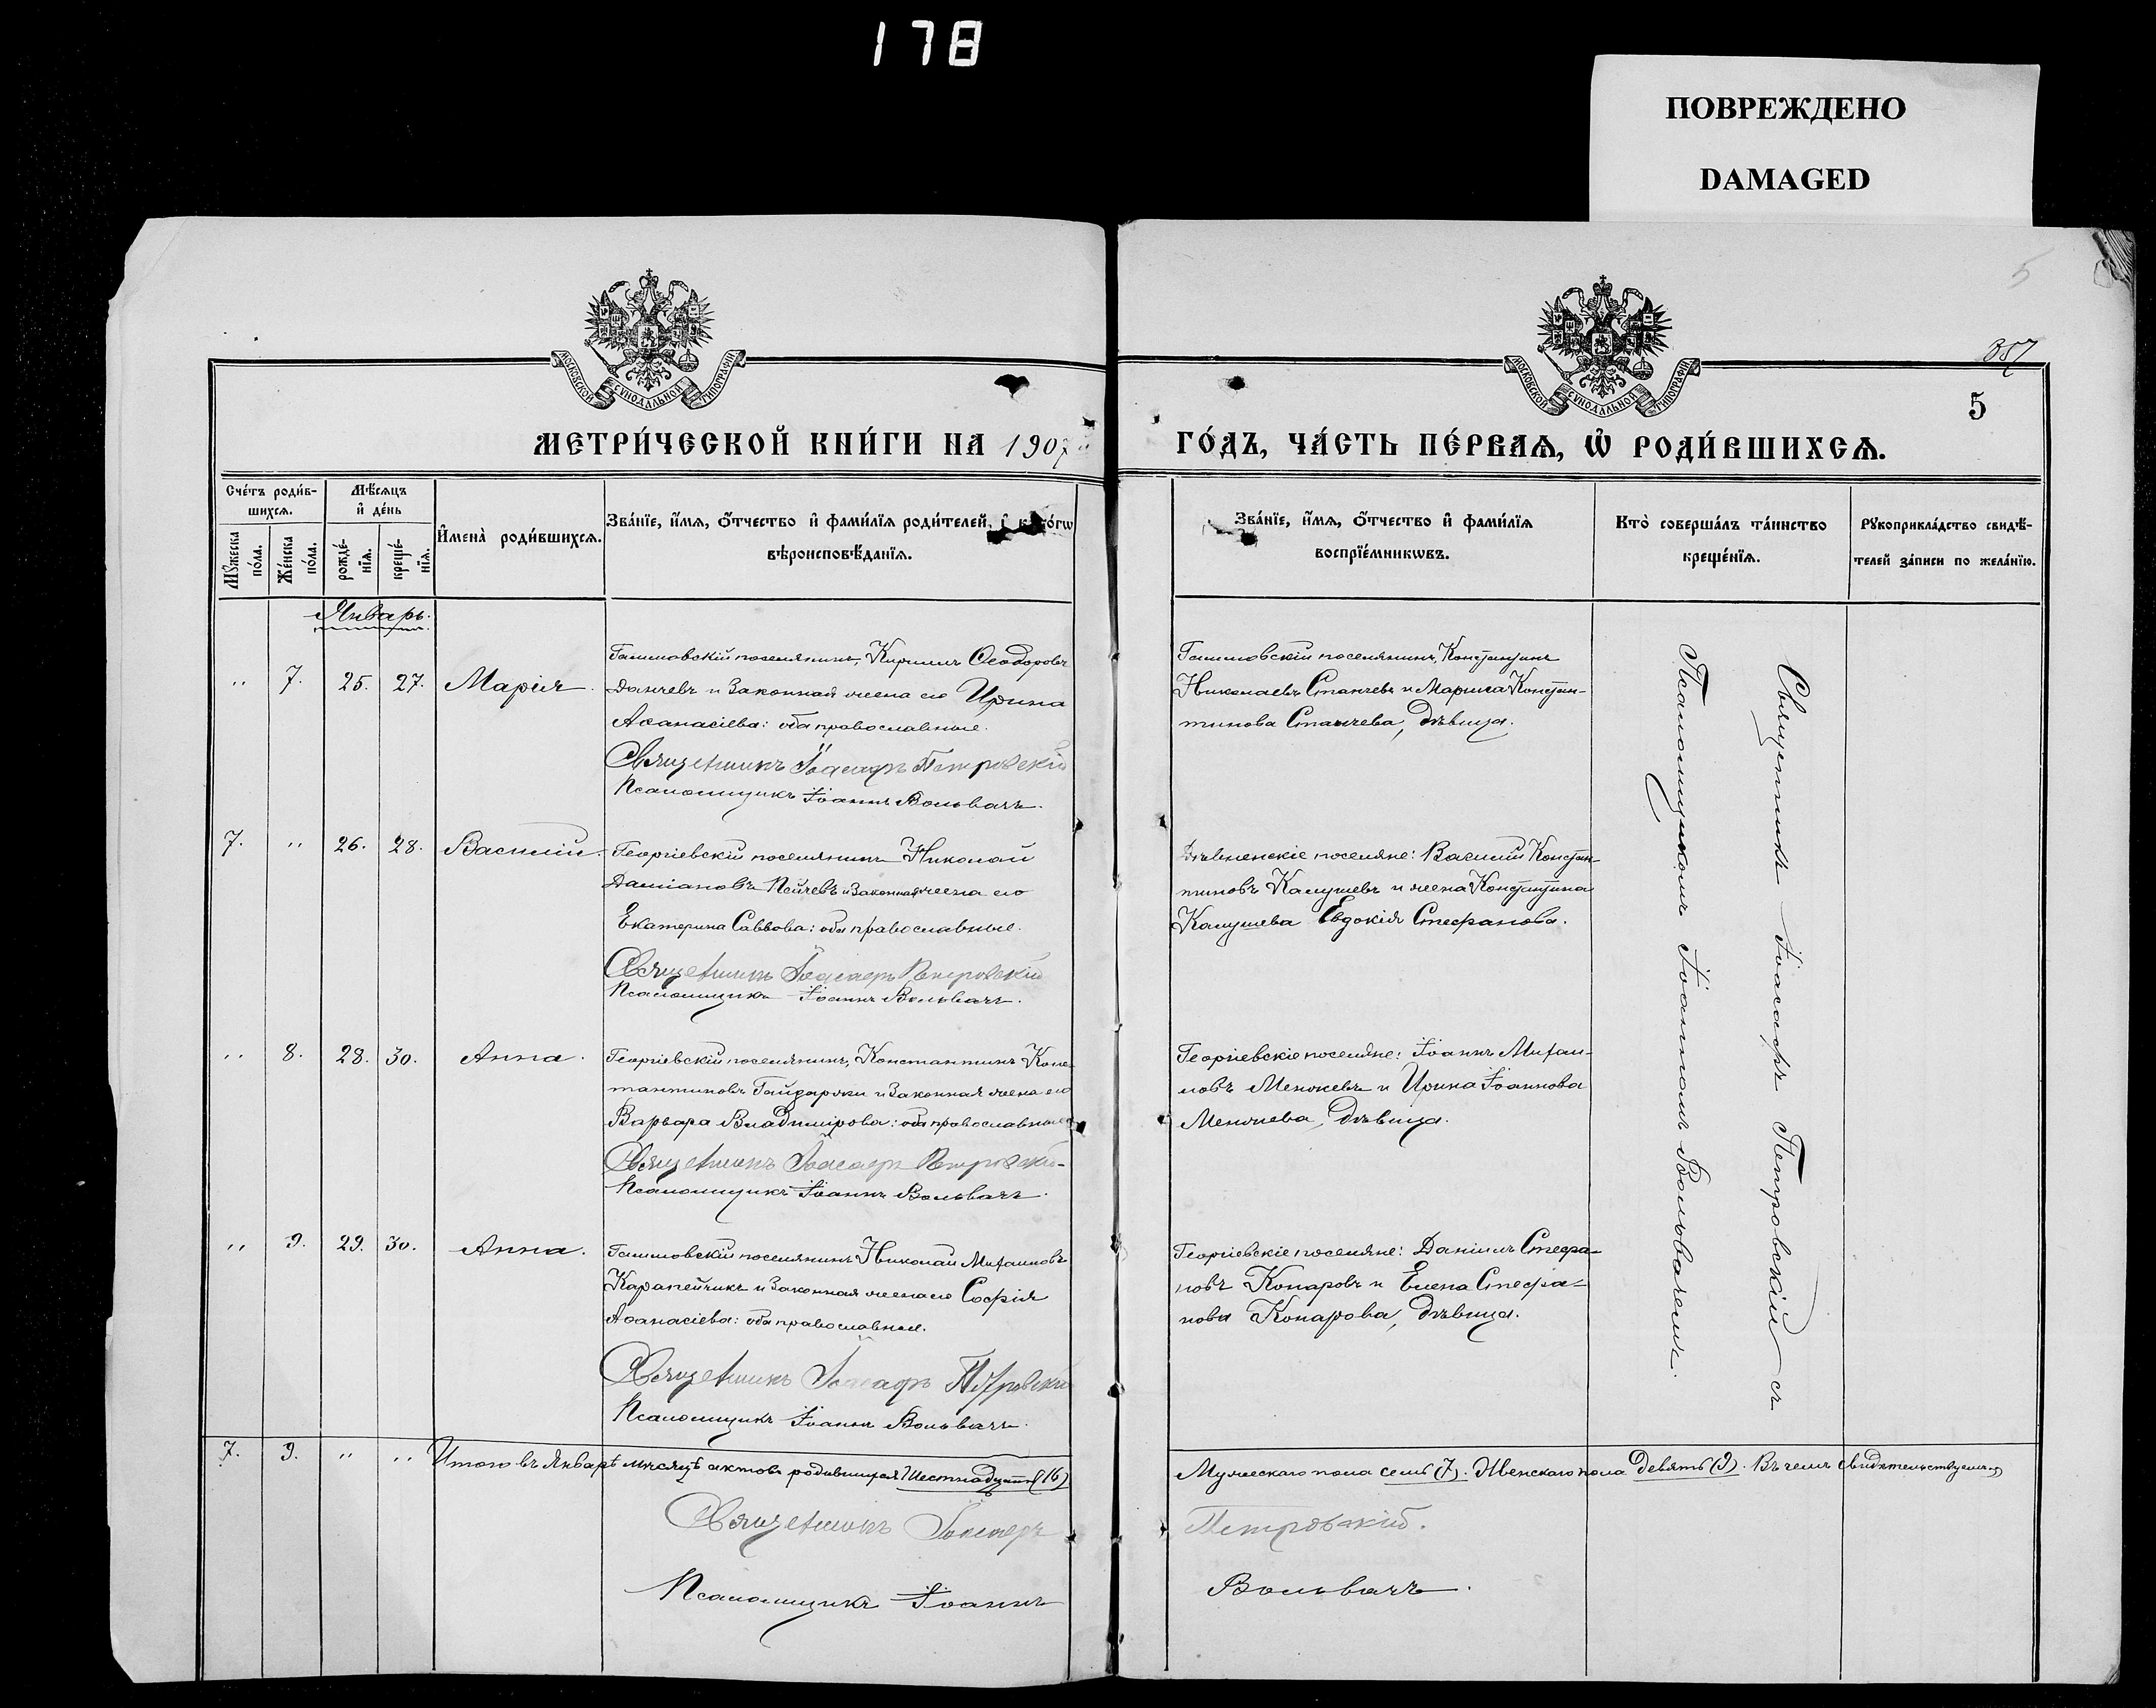 178
ПОВРЕЖДЕНО
DAMAGED
5
357
5
МОСКОВСКОЙ СѴНОДАЛЬНОЙ ТИПОГРАФІИ
МОСКОВСКОЙ СѴНОДАЛЬНОЙ ТИПОГРАФІИ
МЕТРИ́ЧЕСКОЙ КНИ́ГИ НА 1907
ГО́ДЪ, ЧА́СТЬ ПЕ́РВАѦ, Ѡ҆ РОДИ́ВШИХСѦ.
Сче́тъ роди́в-
шихсѧ.
Мꙋ́жеска
по́ла.
Же́нска
по́ла.
Мѣ́сѧцъ
и҆ де́нь
рожде́-
нїѧ.
креще́-
нїѧ.
И҆мена̀ роди́вшихсѧ.
Зва́нїе, и҆́мѧ, ѻ҆́тчество и҆ фами́лїѧ роди́телей, и҆
вѣроисповѣ́данїѧ.
Зва́нїе, и҆́мѧ, ѻ҆́тчество и҆ фами́лїѧ
воспрїе́мникѡвъ.
Кто̀ соверша́лъ та́инство
креще́нїѧ.
Рꙋкоприкла́дство свидѣ́-
телей за́писи по жела́нїю.
Январь.
" 7. 25. 27. Марія.
Ташмовскій поселянинъ, Кириллъ Ѳеодоровъ
Данчевъ и законная жена его Ирина
Аѳанасіева: оба православные.
Священникъ Іоасафъ Петровскій
Псаломщикъ Іоаннъ Вольвачъ.
Ташмовскій поселянинъ, Константинъ
Николаевъ Станчевъ и Марина Констан-
тинова Станчева, дѣвица.
7. " 26. 28. Василій.
Георгіевскій поселянинъ Николай
Даміановъ Пейчевъ и законная жена его
Екатерина Саввова: оба православные.
Священникъ Іоасафъ Петровскій
Псаломщикъ Іоаннъ Вольвачъ.
поселяне: Василій Констан-
тиновъ Калушевъ и жена Константина
Калушева Евдокія Стефанова.
" 8. 28. 30. Анна.
Георгіевскій поселянинъ, Константинъ Конс-
тантиновъ Гайдаржи и законная жена его
Варвара Владимірова: оба православные
Священникъ Іоасафъ Петровскій
Псаломщикъ Іоаннъ Вольвачъ.
Георгіевскіе поселяне: Іоаннъ Михаи-
ловъ и Ирина Іоаннова
дѣвица.
" 9. 29. 30. Анна.
Ташмовскій поселянинъ Николай Михаиловъ
Карапейчикъ и законная жена его Софія
Аѳанасіева: оба православные.
Священникъ Іоасафъ Петровскій
Псаломщикъ Іоаннъ Вольвачъ.
Георгіевскіе поселяне: Даніилъ Стефа-
новъ Копаровъ и Елена Стефа-
нова Копарова, дѣвица.
Священникъ Іоасафъ Петровскій съ
Псаломщикомъ Іоанномъ Вольвачемъ.
7. 9. " " Итого въ Январѣ мѣсяцѣ актовъ родившихся Шестнадцать (16)
Мужескаго пола семь (7). Женскаго пола девять (9). Въ чемъ свидѣтельствуемъ
Священникъ Іоасафъ
Петровскій.
Псаломщикъ Іоаннъ
Вольвачъ.